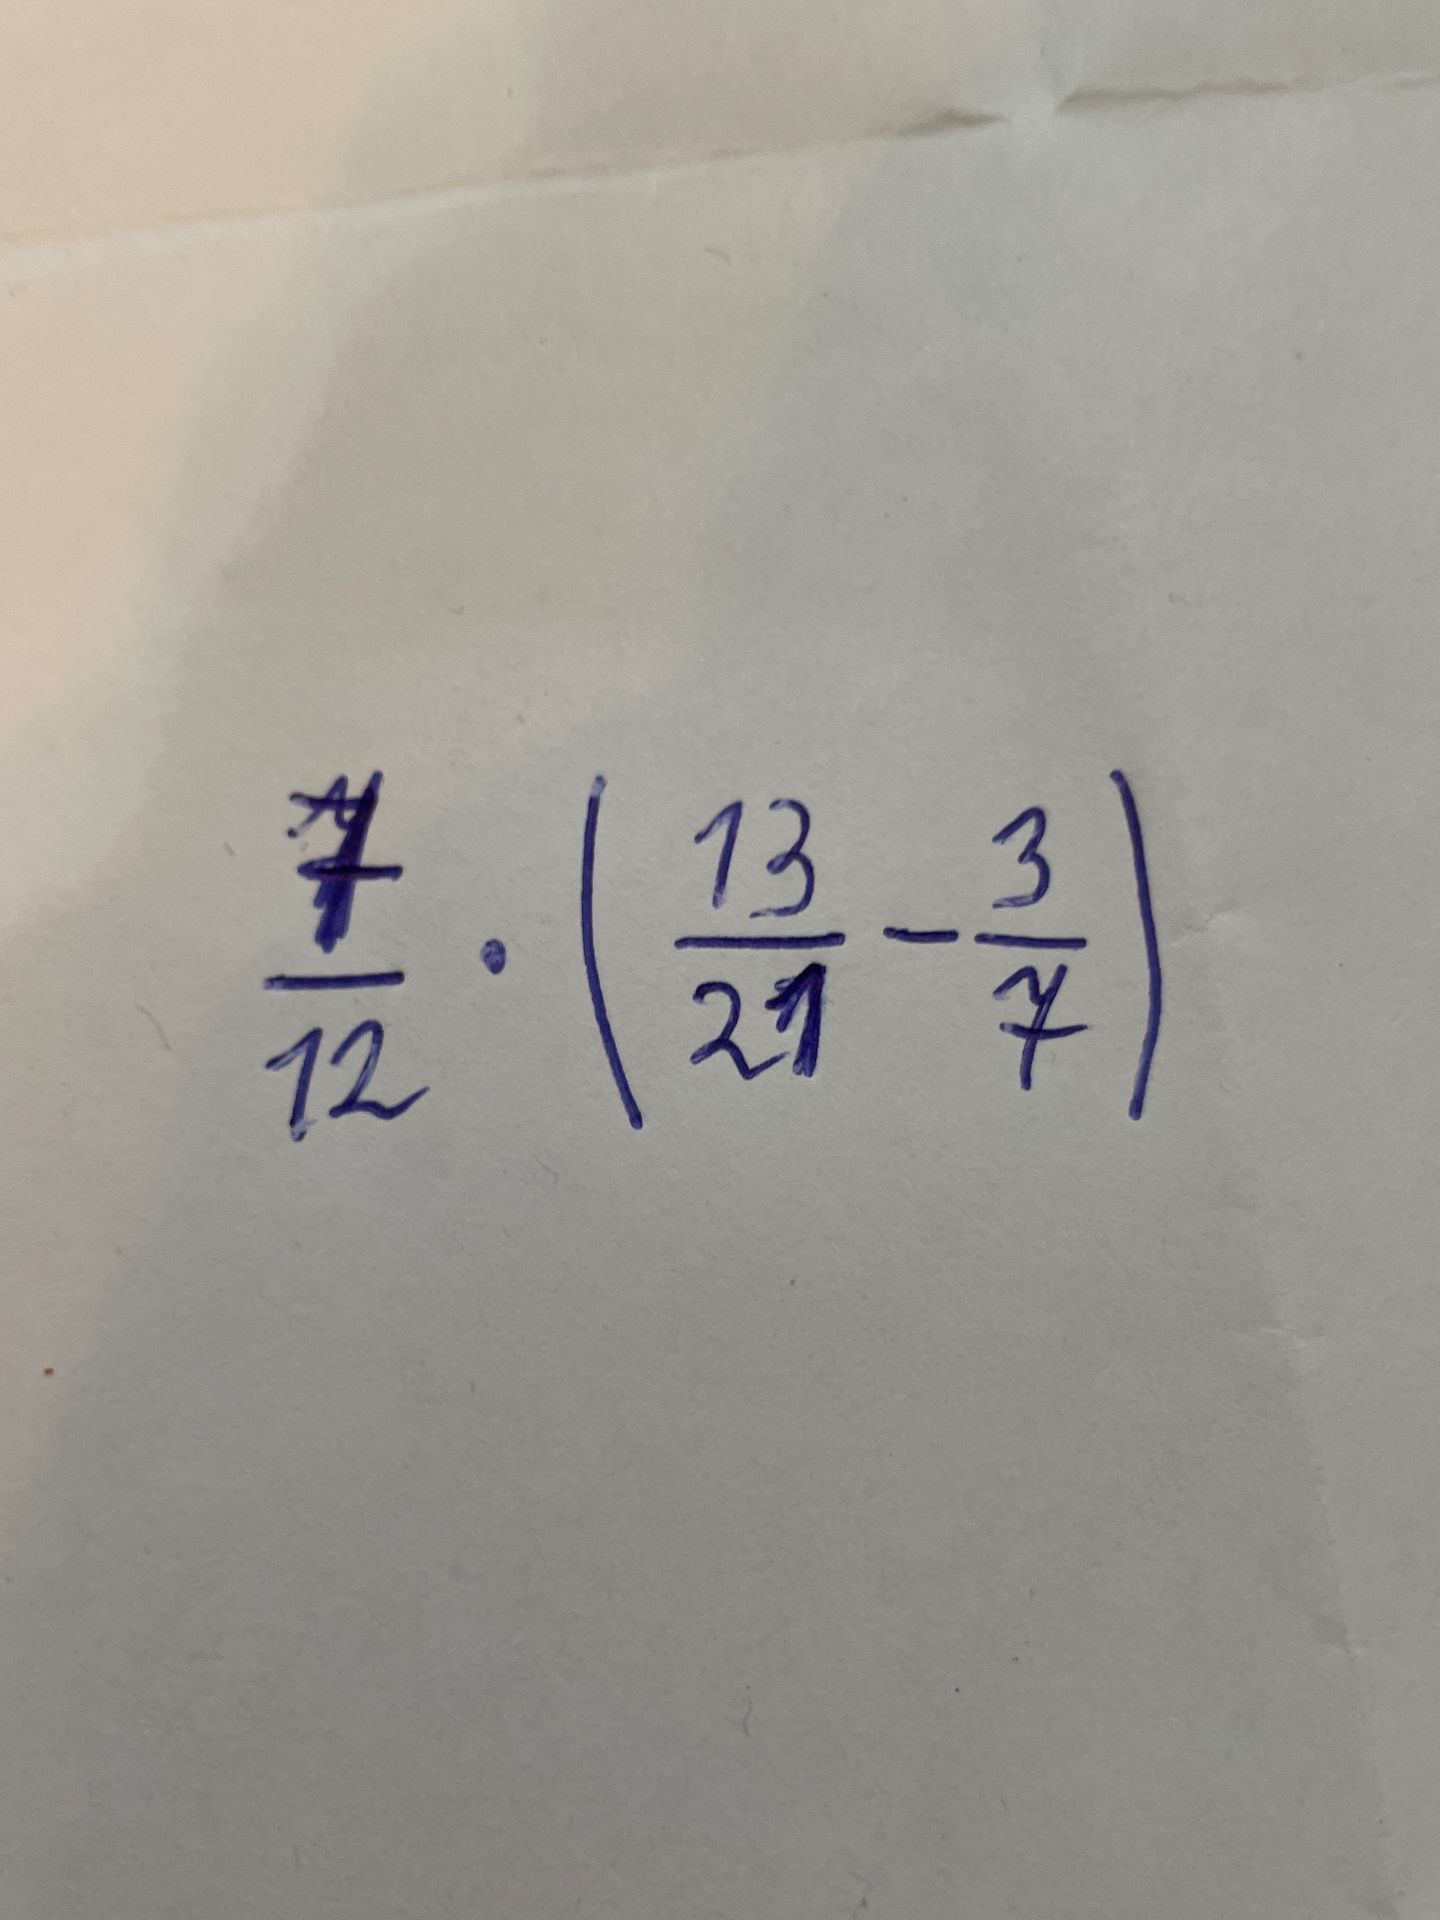 7/12 · (13/21 - 3/7)